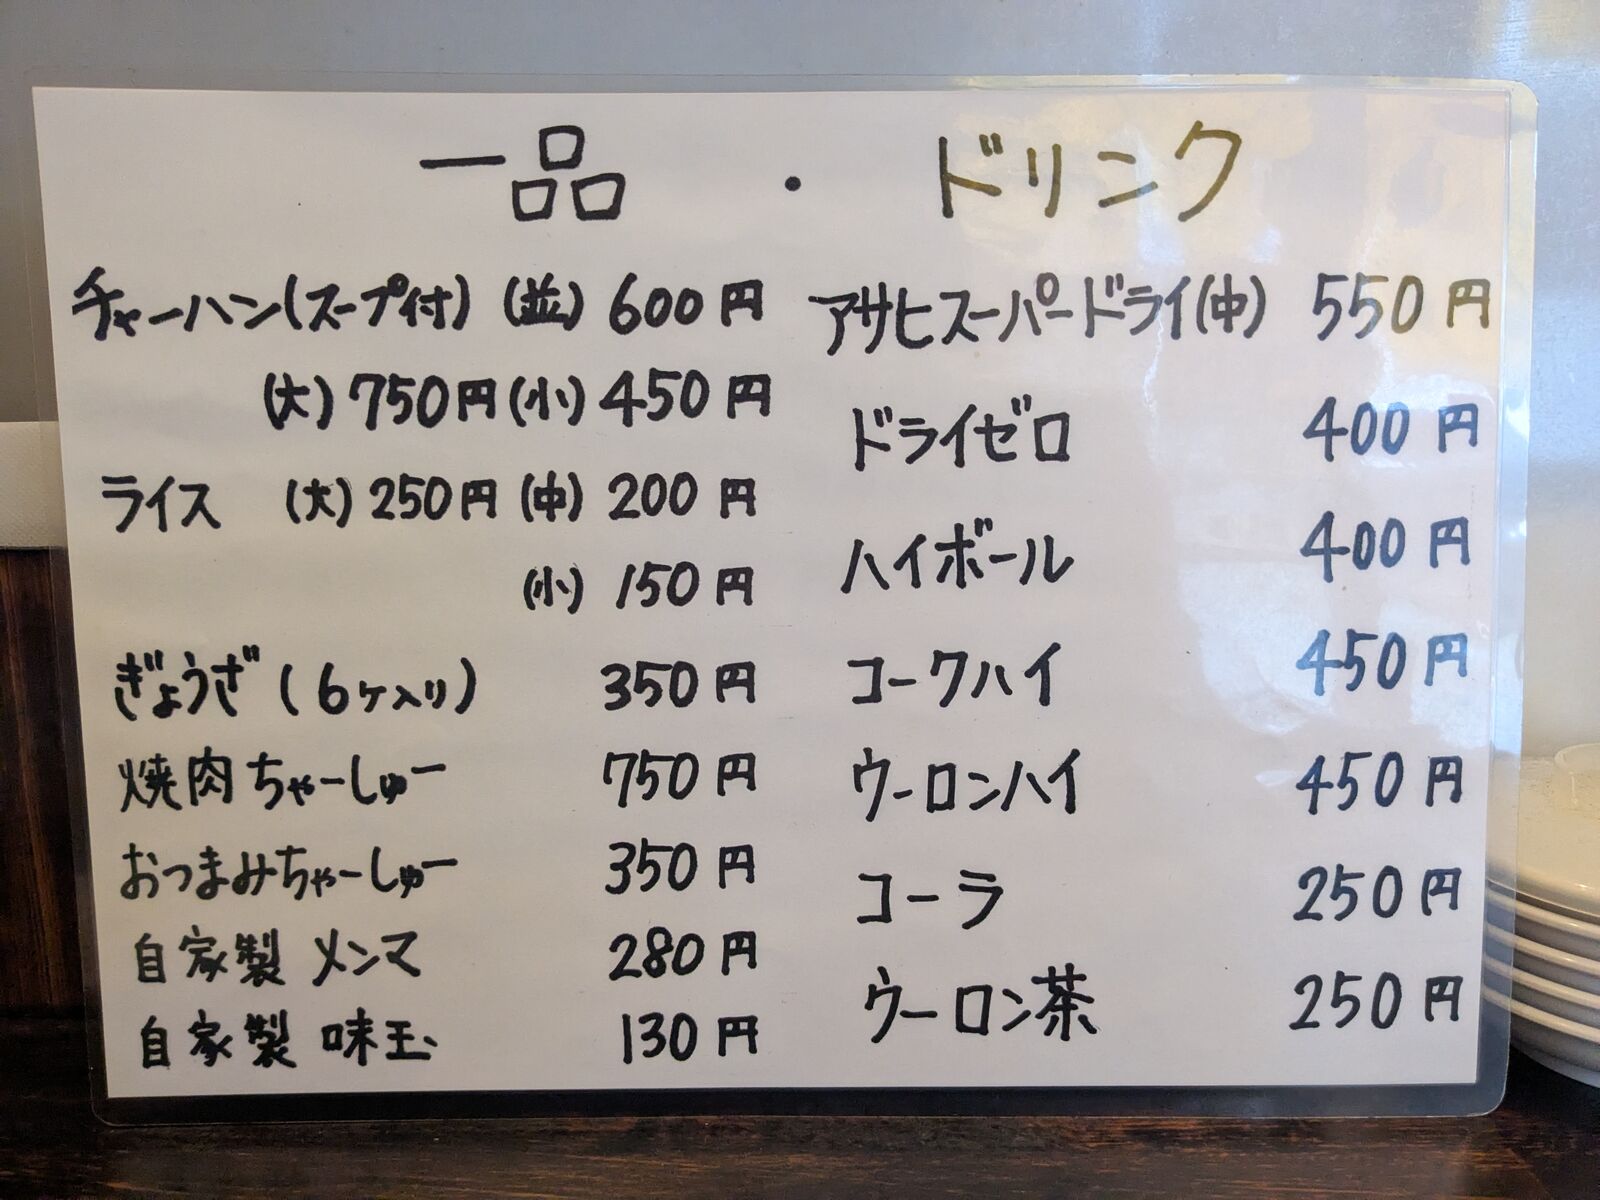 一品 ・ ドリンク
チャーハン(スープ付) (並) 600円
(大) 750円 (小) 450円
ライス (大) 250円 (中) 200円
(小) 150円
ぎょうざ (6ヶ入り) 350円
焼肉ちゃーしゅー 750円
おつまみちゃーしゅー 350円
自家製 メンマ 280円
自家製 味玉 130円
アサヒスーパードライ(中) 550円
ドライゼロ 400円
ハイボール 400円
コークハイ 450円
ウーロンハイ 450円
コーラ 250円
ウーロン茶 250円